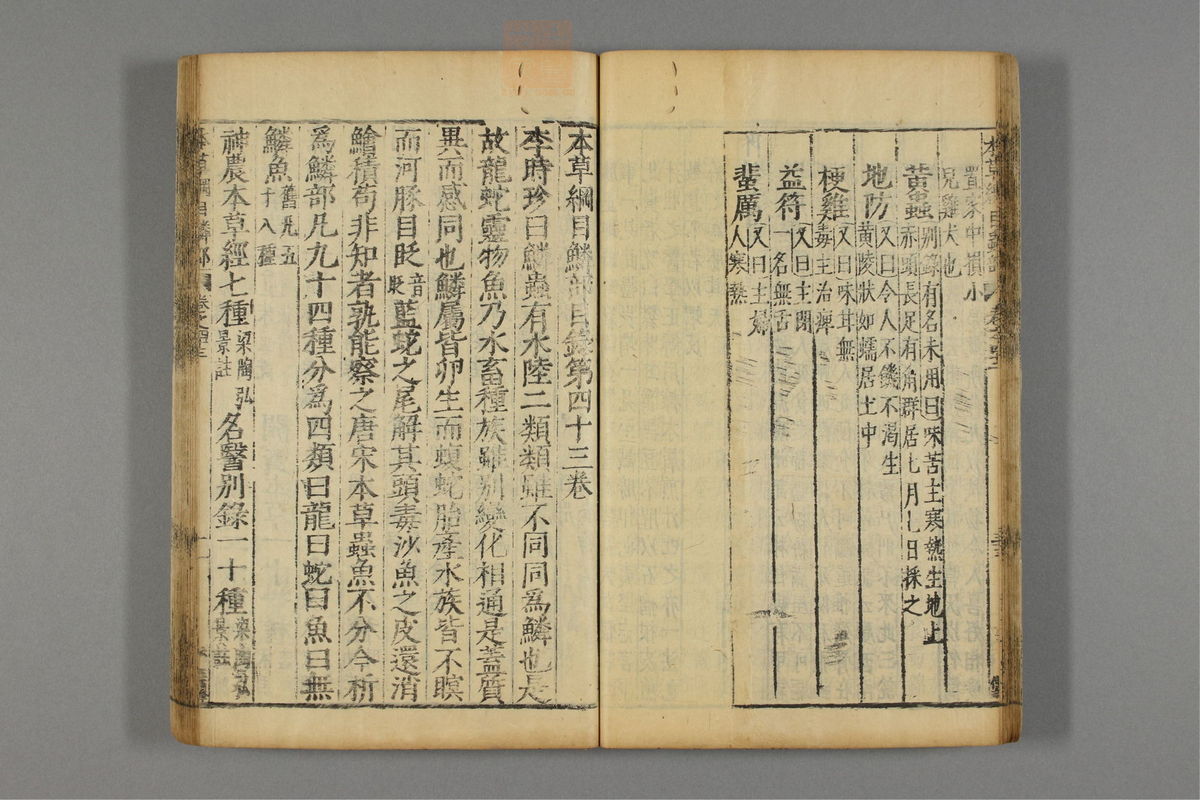 置家中損小
兒雞犬也
黃蟲別錄有名未用曰味苦主寒熱生地上
赤頭長足有角群居七月七日採之
地防又曰令人不饑不渴生
黃陵狀如蠕居土中
梗雞又曰味甘無
毒主治痺
益符又曰主閉
一名無舌
蜚厲又曰主婦
人寒熱
本草綱目鱗部目錄第四十三卷
李時珍曰鱗蟲有水陸二類類雖不同同為鱗也是
故龍蛇靈物魚乃水畜種族雖別變化相通是蓋質
異而感同也鱗屬皆卵生而蝮蛇胎產水族皆不瞑
而河豚目眨音貶藍蛇之尾解其頭毒沙魚之皮還消
鱠積苟非知者孰能察之唐宋本草蟲魚不分今析
為鱗部凡九十四種分為四類曰龍曰蛇曰魚曰無
鱗魚舊凡五十八種
神農本草經七種梁陶弘景註名醫別錄一十種梁陶弘景註